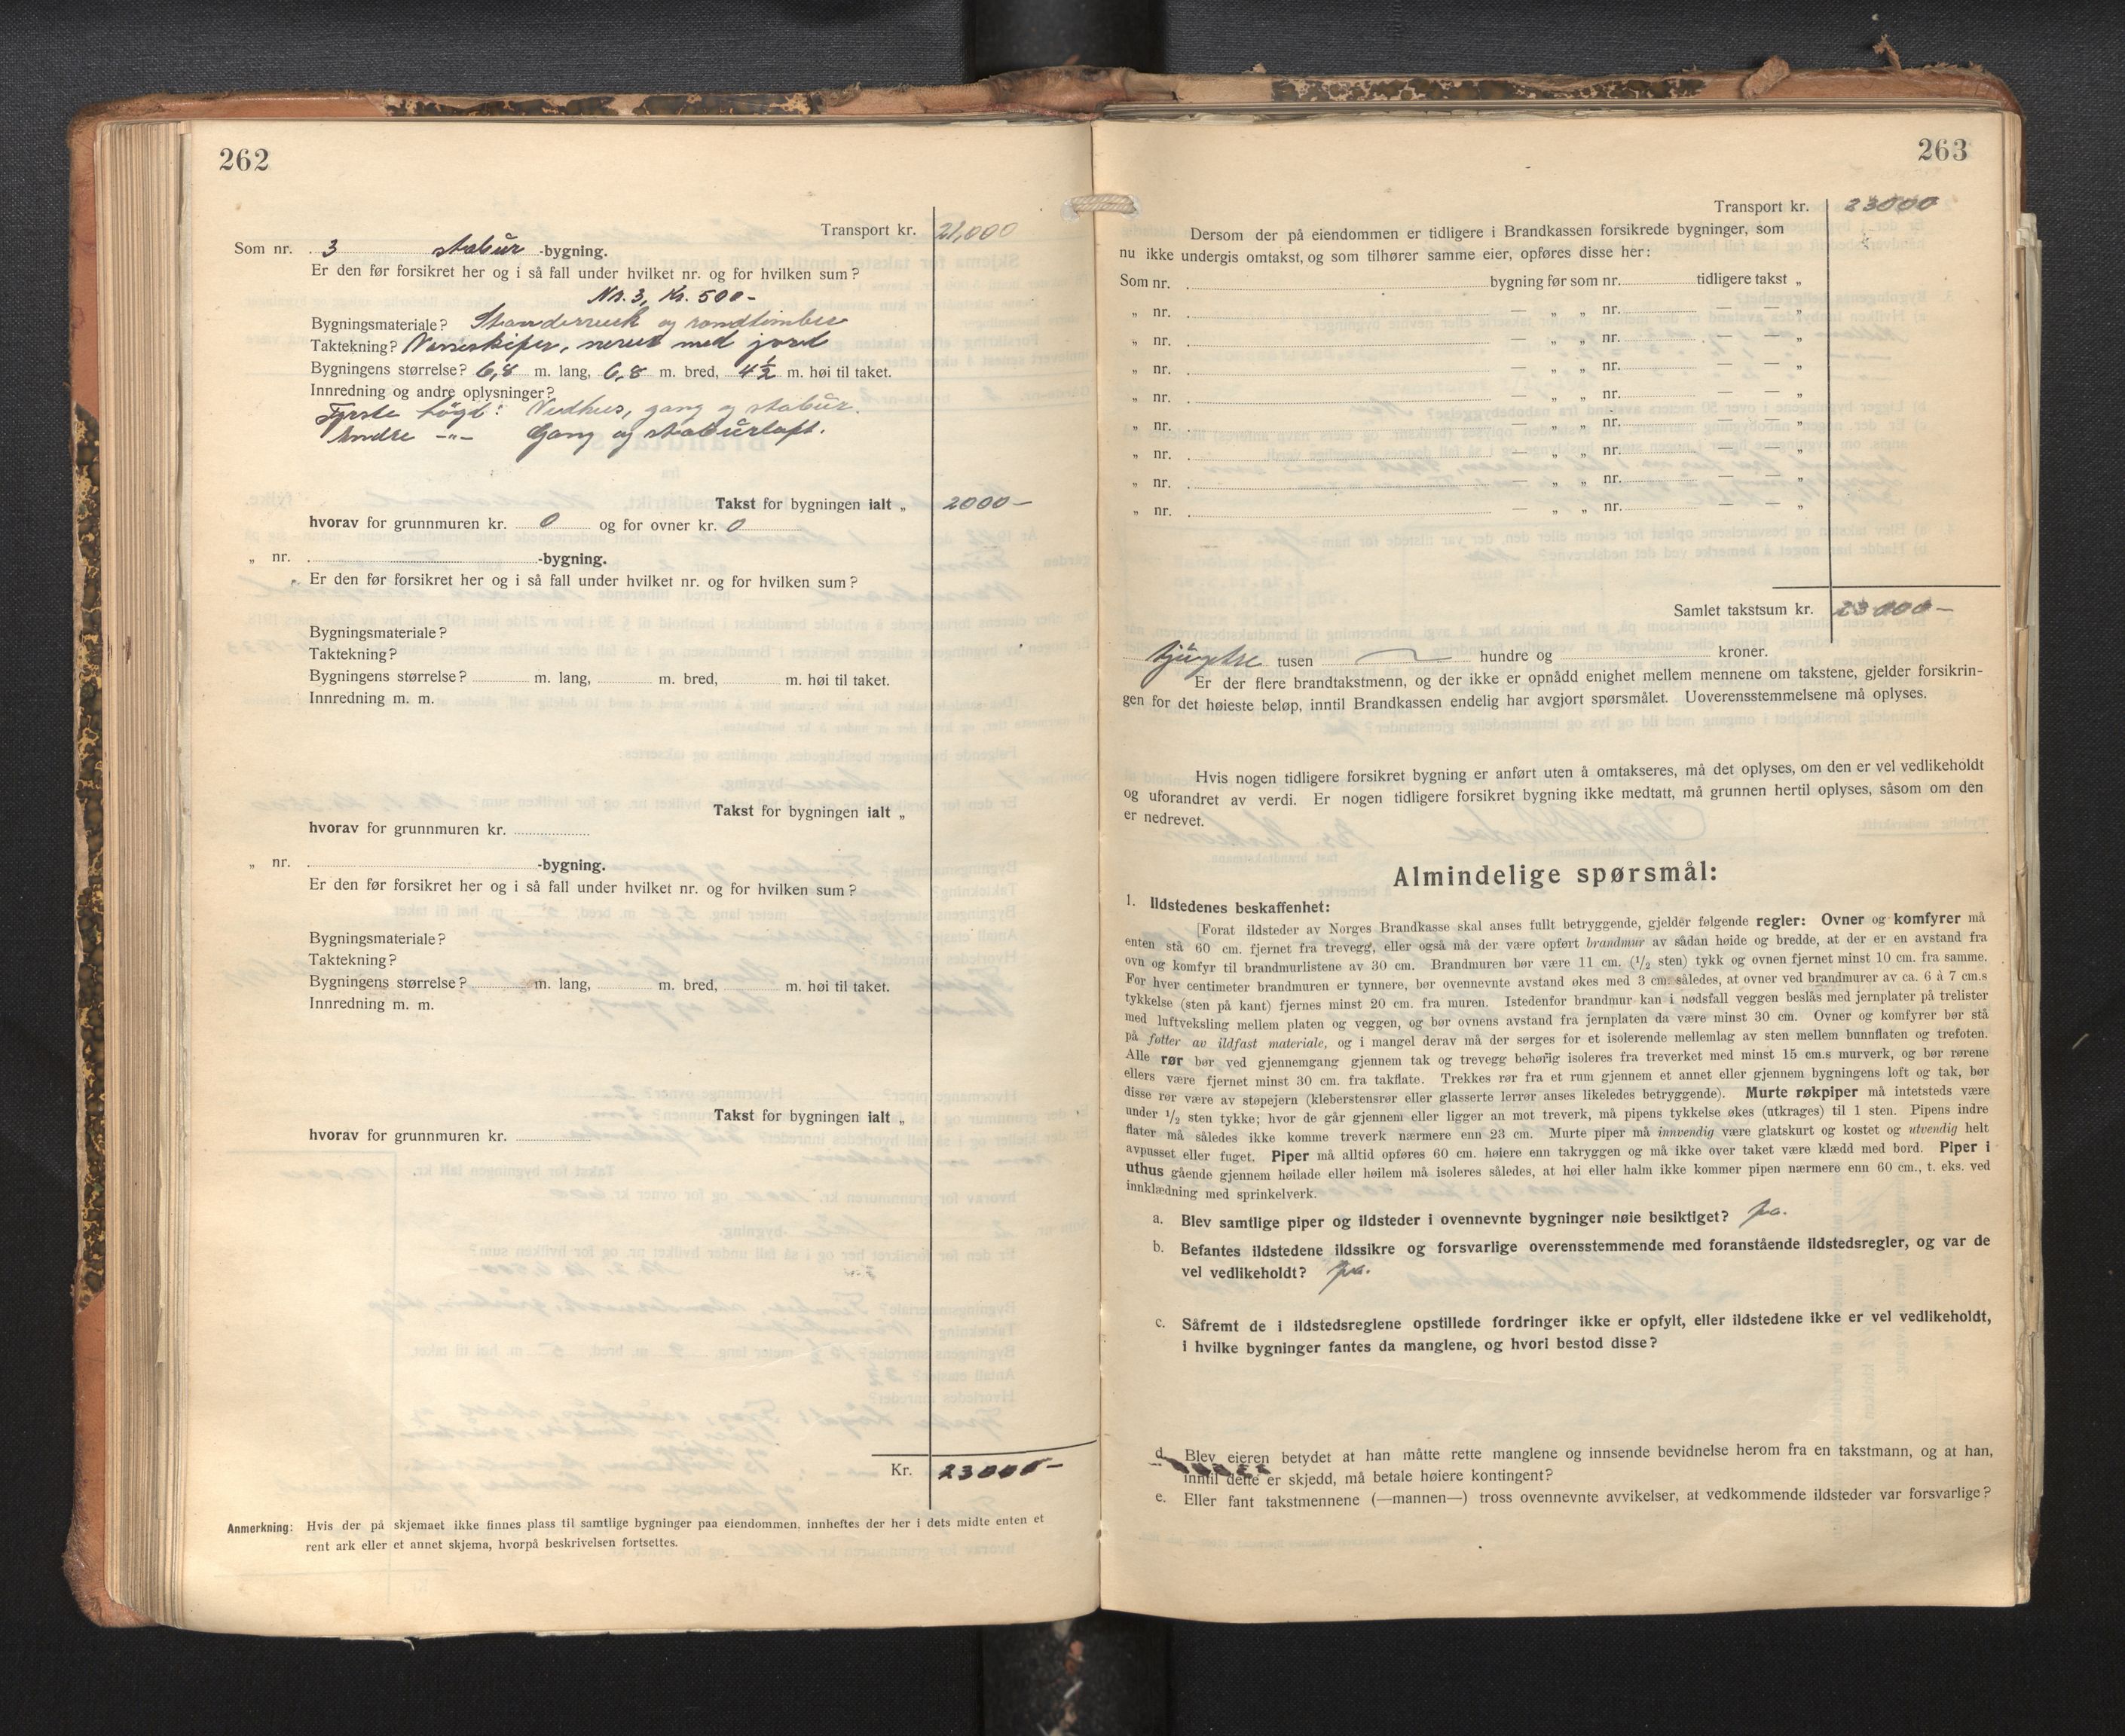 262
Transport kr. 21,000
Som nr. 3 stabur -bygning.
Er den før forsikret her og i så fall under hvilket nr. og for hvilken sum?
Nr. 3, Kr. 500-
Bygningsmateriale? Standerverk og rondtimber
Taktekning? Vosseskifer, neret med jord
Bygningens størrelse? 6,8 m. lang, 6,8 m. bred, 4½ m. høi til taket.
Innredning og andre oplysninger?
Fyrste høgd: Vedhus, gang og stabur.
Andre -"- Gang og staburloft.
Takst for bygningen ialt „ 2000-
hvorav for grunnmuren kr. 0 og for ovner kr. 0
„ nr. -bygning.
Er den før forsikret her og i så fall under hvilket nr. og for hvilken sum?
Bygningsmateriale?
Taktekning?
Bygningens størrelse? m. lang, m. bred, m. høi til taket.
Innredning m. m.
Takst for bygningen ialt „
hvorav for grunnmuren kr.
„ nr. -bygning.
Er den før forsikret her og i så fall under hvilket nr. og for hvilken sum?
Bygningsmateriale?
Taktekning?
Bygningens størrelse? m. lang, m. bred, m. høi til taket.
Innredning m. m.
Takst for bygningen ialt „
hvorav for grunnmuren kr.
Kr. 23000-
Anmerkning: Hvis der på skjemaet ikke finnes plass til samtlige bygninger paa eiendommen, innheftes der her i dets midte enten et
rent ark eller et annet skjema, hvorpå beskrivelsen fortsettes.
263
Transport kr. 23000
Dersom der på eiendommen er tidligere i Brandkassen forsikrede bygninger, som
nu ikke undergis omtakst, og som tilhører samme eier, opføres disse her:
Som nr. bygning før som nr. tidligere takst „
„ nr. — „ „ nr. — — „
„ nr. — „ „ nr. — — „
„ nr. — „ „ nr. — — „
„ nr. — „ „ nr. — — „
„ nr. — „ „ nr. — — „
„ nr. — „ „ nr. — — „
„ nr. — „ „ nr. — — „
„ nr. — „ „ nr. — — „
Samlet takstsum kr. 23000-
tjugtre tusen — hundre og kroner.
Er der flere brandtakstmenn, og der ikke er opnådd enighet mellem mennene om takstene, gjelder forsikrin-
gen for det høieste beløp, inntil Brandkassen endelig har avgjort spørsmålet. Uoverensstemmelsene må oplyses.
Hvis nogen tidligere forsikret bygning er anført uten å omtakseres, må det oplyses, om den er vel vedlikeholdt
og uforandret av verdi. Er nogen tidligere forsikret bygning ikke medtatt, må grunnen hertil oplyses, såsom om den
er nedrevet.
Almindelige spørsmål:
1. Ildstedenes beskaffenhet:
[Forat ildsteder av Norges Brandkasse skal anses fullt betryggende, gjelder følgende regler: Ovner og komfyrer må
enten stå 60 cm. fjernet fra trevegg, eller også må der være opført brandmur av sådan høide og bredde, at der er en avstand fra
ovn og komfyr til brandmurlistene av 30 cm. Brandmuren bør være 11 cm. (1/2 sten) tykk og ovnen fjernet minst 10 cm. fra samme.
For hver centimeter brandmuren er tynnere, bør ovennevnte avstand økes med 3 cm. således, at ovner ved brandmurer av ca. 6 à 7 cm.s
tykkelse (sten på kant) fjernes minst 20 cm. fra muren. Istedenfor brandmur kan i nødsfall veggen beslås med jernplater på trelister
med luftveksling mellem platen og veggen, og bør ovnens avstand fra jernplaten da være minst 30 cm. Ovner og komfyrer bør stå
på føtter av ildfast materiale, og i mangel derav må der sørges for et isolerende mellemlag av sten mellem bunnflaten og trefoten.
Alle rør bør ved gjennemgang gjennem tak og trevegg behørig isoleres fra treverket med minst 15 cm.s murverk, og bør rørene
ellers være fjernet minst 30 cm. fra takflate. Trekkes rør fra et rum gjennem et annet eller gjennem bygningens loft og tak, bør
disse rør være av støpejern (kleberstensrør eller glasserte lerrør anses likeledes betryggende). Murte røkpiper må intetsteds være
under 1/2 sten tykke; hvor de går gjennem eller ligger an mot treverk, må pipens tykkelse økes (utkrages) til 1 sten. Pipens indre
flater må således ikke komme treverk nærmere enn 23 cm. Murte piper må innvendig være glatskurt og kostet og utvendig helt
avpusset eller fuget. Piper må alltid opføres 60 cm. høiere enn takryggen og må ikke over taket være klædd med bord. Piper i
uthus gående gjennem høilade eller høilem må isoleres således, at høi eller halm ikke kommer pipen nærmere enn 60 cm., t. eks. ved
innklædning med sprinkelverk.
a. Blev samtlige piper og ildsteder i ovennevnte bygninger nøie besiktiget? ja.
b. Befantes ildstedene ildssikre og forsvarlige overensstemmende med foranstående ildstedsregler, og var de
vel vedlikeholdt? ja.
c. Såfremt de i ildstedsreglene opstillede fordringer ikke er opfylt, eller ildstedene ikke er vel vedlikeholdt,
i hvilke bygninger fantes da manglene, og hvori bestod disse?
d. Blev eieren betydet at han måtte rette manglene og innsende bevidnelse herom fra en takstmann, og at han,
inntil dette er skjedd, må betale høiere kontingent?
e. Eller fant takstmennene (—mannen—) tross ovennevnte avvikelser, at vedkommende ildsteder var forsvarlige?